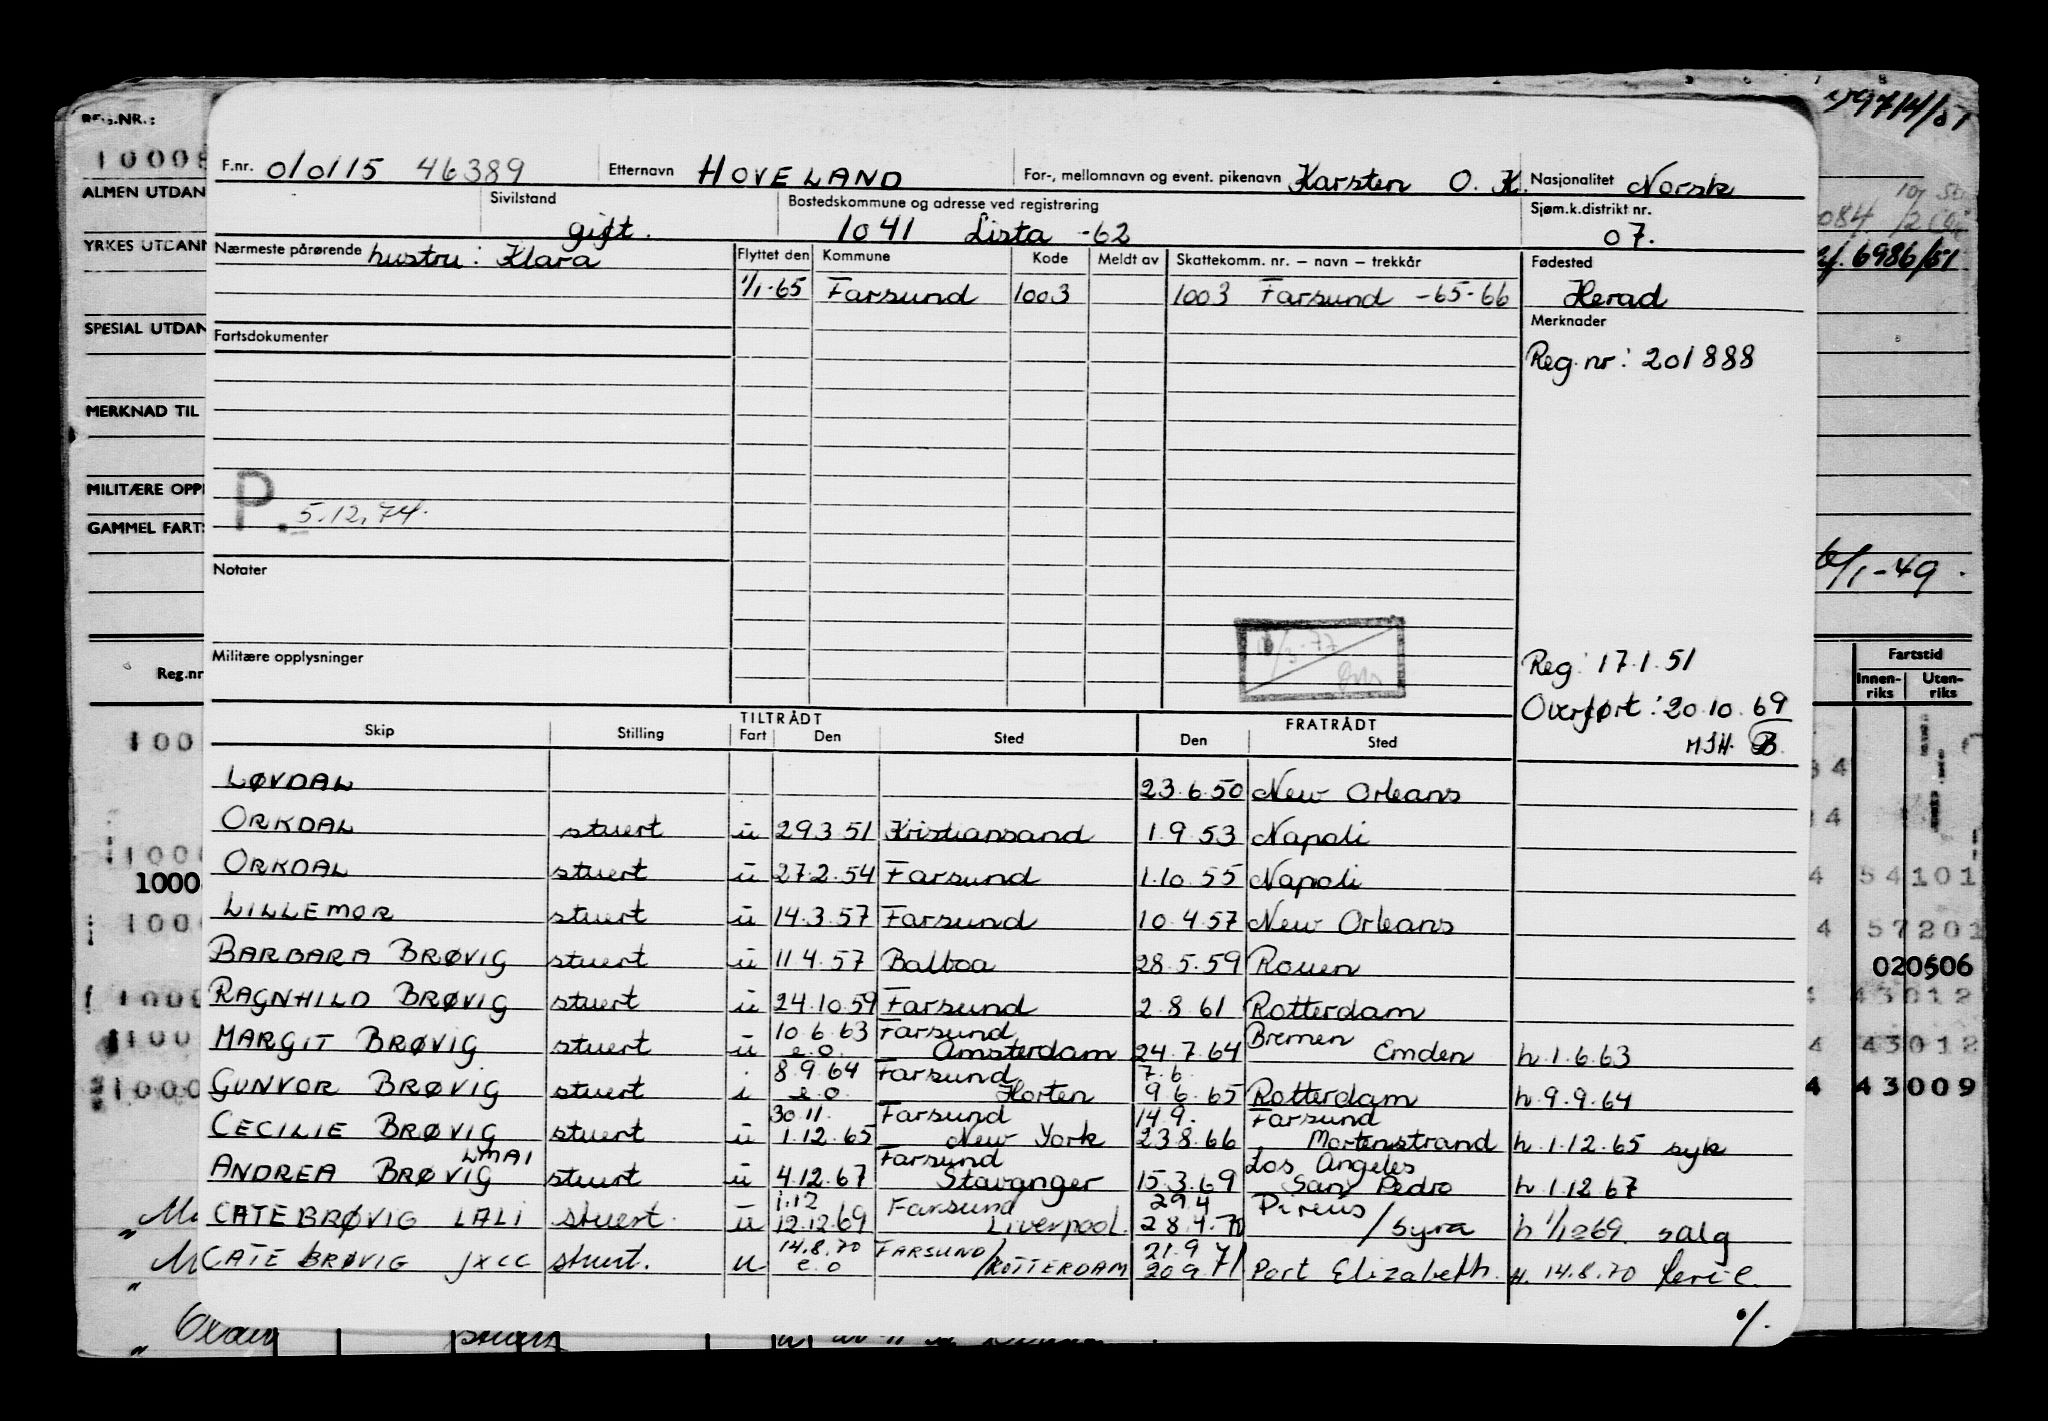 F.nr. 010115 46389 Etternavn HOVELAND For-, mellomnavn og event. pikenavn Karsten O. K. Nasjonalitet Norsk
Sivilstand gift. Bostedskommune og adresse ved registrering 1041 Lista -62 Sjøm.k.distrikt nr. 07.
Nærmeste pårørende hustru: Klara Flyttet den Kommune Kode Meldt av Skattekomm. nr. – navn – trekkår Fødested
1/1-65 Farsund 1003 1003 Farsund -65-66 Herad
Fartsdokumenter Merknader
Reg.nr: 201888
P. 5.12.74.
Notater
Militære opplysninger
Reg: 17.1.51
Overført: 20.10.69
MSH. B.
TILTRÅDT FRATRÅDT
Skip Stilling Fart Den Sted Den Sted
LØVDAL 23.6.50 New Orleans
ORKDAL stuert u 29.3 51 Kristiansand 1.9 53 Napoli
ORKDAL stuert u 27.2.54 Farsund 1.10.55 Napoli
LILLEMOR stuert u 14.3.57 Farsund 10.4.57 New Orleans
BARBARA BRØVIG stuert u 11.4.57 Balboa 28.5.59 Rouen
RAGNHILD BRØVIG stuert u 24.10.59 Farsund 2.8.61 Rotterdam
10.6.63 Farsund Bremen
MARGIT BRØVIG stuert u e.o. Amsterdam 24.7.64 Emden h.1.6.63
8.9.64 Farsund 7.6.
GUNVOR BRØVIG stuert i e.o. Horten 9.6.65 Rotterdam h.9.9.64
30.11. Farsund 14.9. Farsund
CECILIE BRØVIG stuert u 1.12.65 New York 23.8.66 h.1.12.65 syk
LMAI Farsund Los Angeles
ANDREA BRØVIG stuert u 4.12.67 Stavanger 15.3.69 San Pedro h.1.12.67
1.12 Farsund 29.4 Pireus
CATE BRØVIG LALI stuert. u 12.12.69 Liverpool. 28.4.70 / Syra h 1/12 69. salg
14.8.70 FARSUND/ 21.9
CATE BRØVIG JXCC stuert. u e.o ROTTERDAM 20.9.71 Port Elizabeth. H. 14.8.70
%.
REG.NR.:
10008
ALMEN UTDAN
YRKES UTDANN
SPESIAL UTDAN
MERKNAD TIL
MILITÆRE OPP
GAMMEL FART
Reg.nr
1000
084
6986/51
1-49.
Fartstid
Innen-riks Uten-riks
4 54101
4 57201
020506
43012
4 43012
4 43009